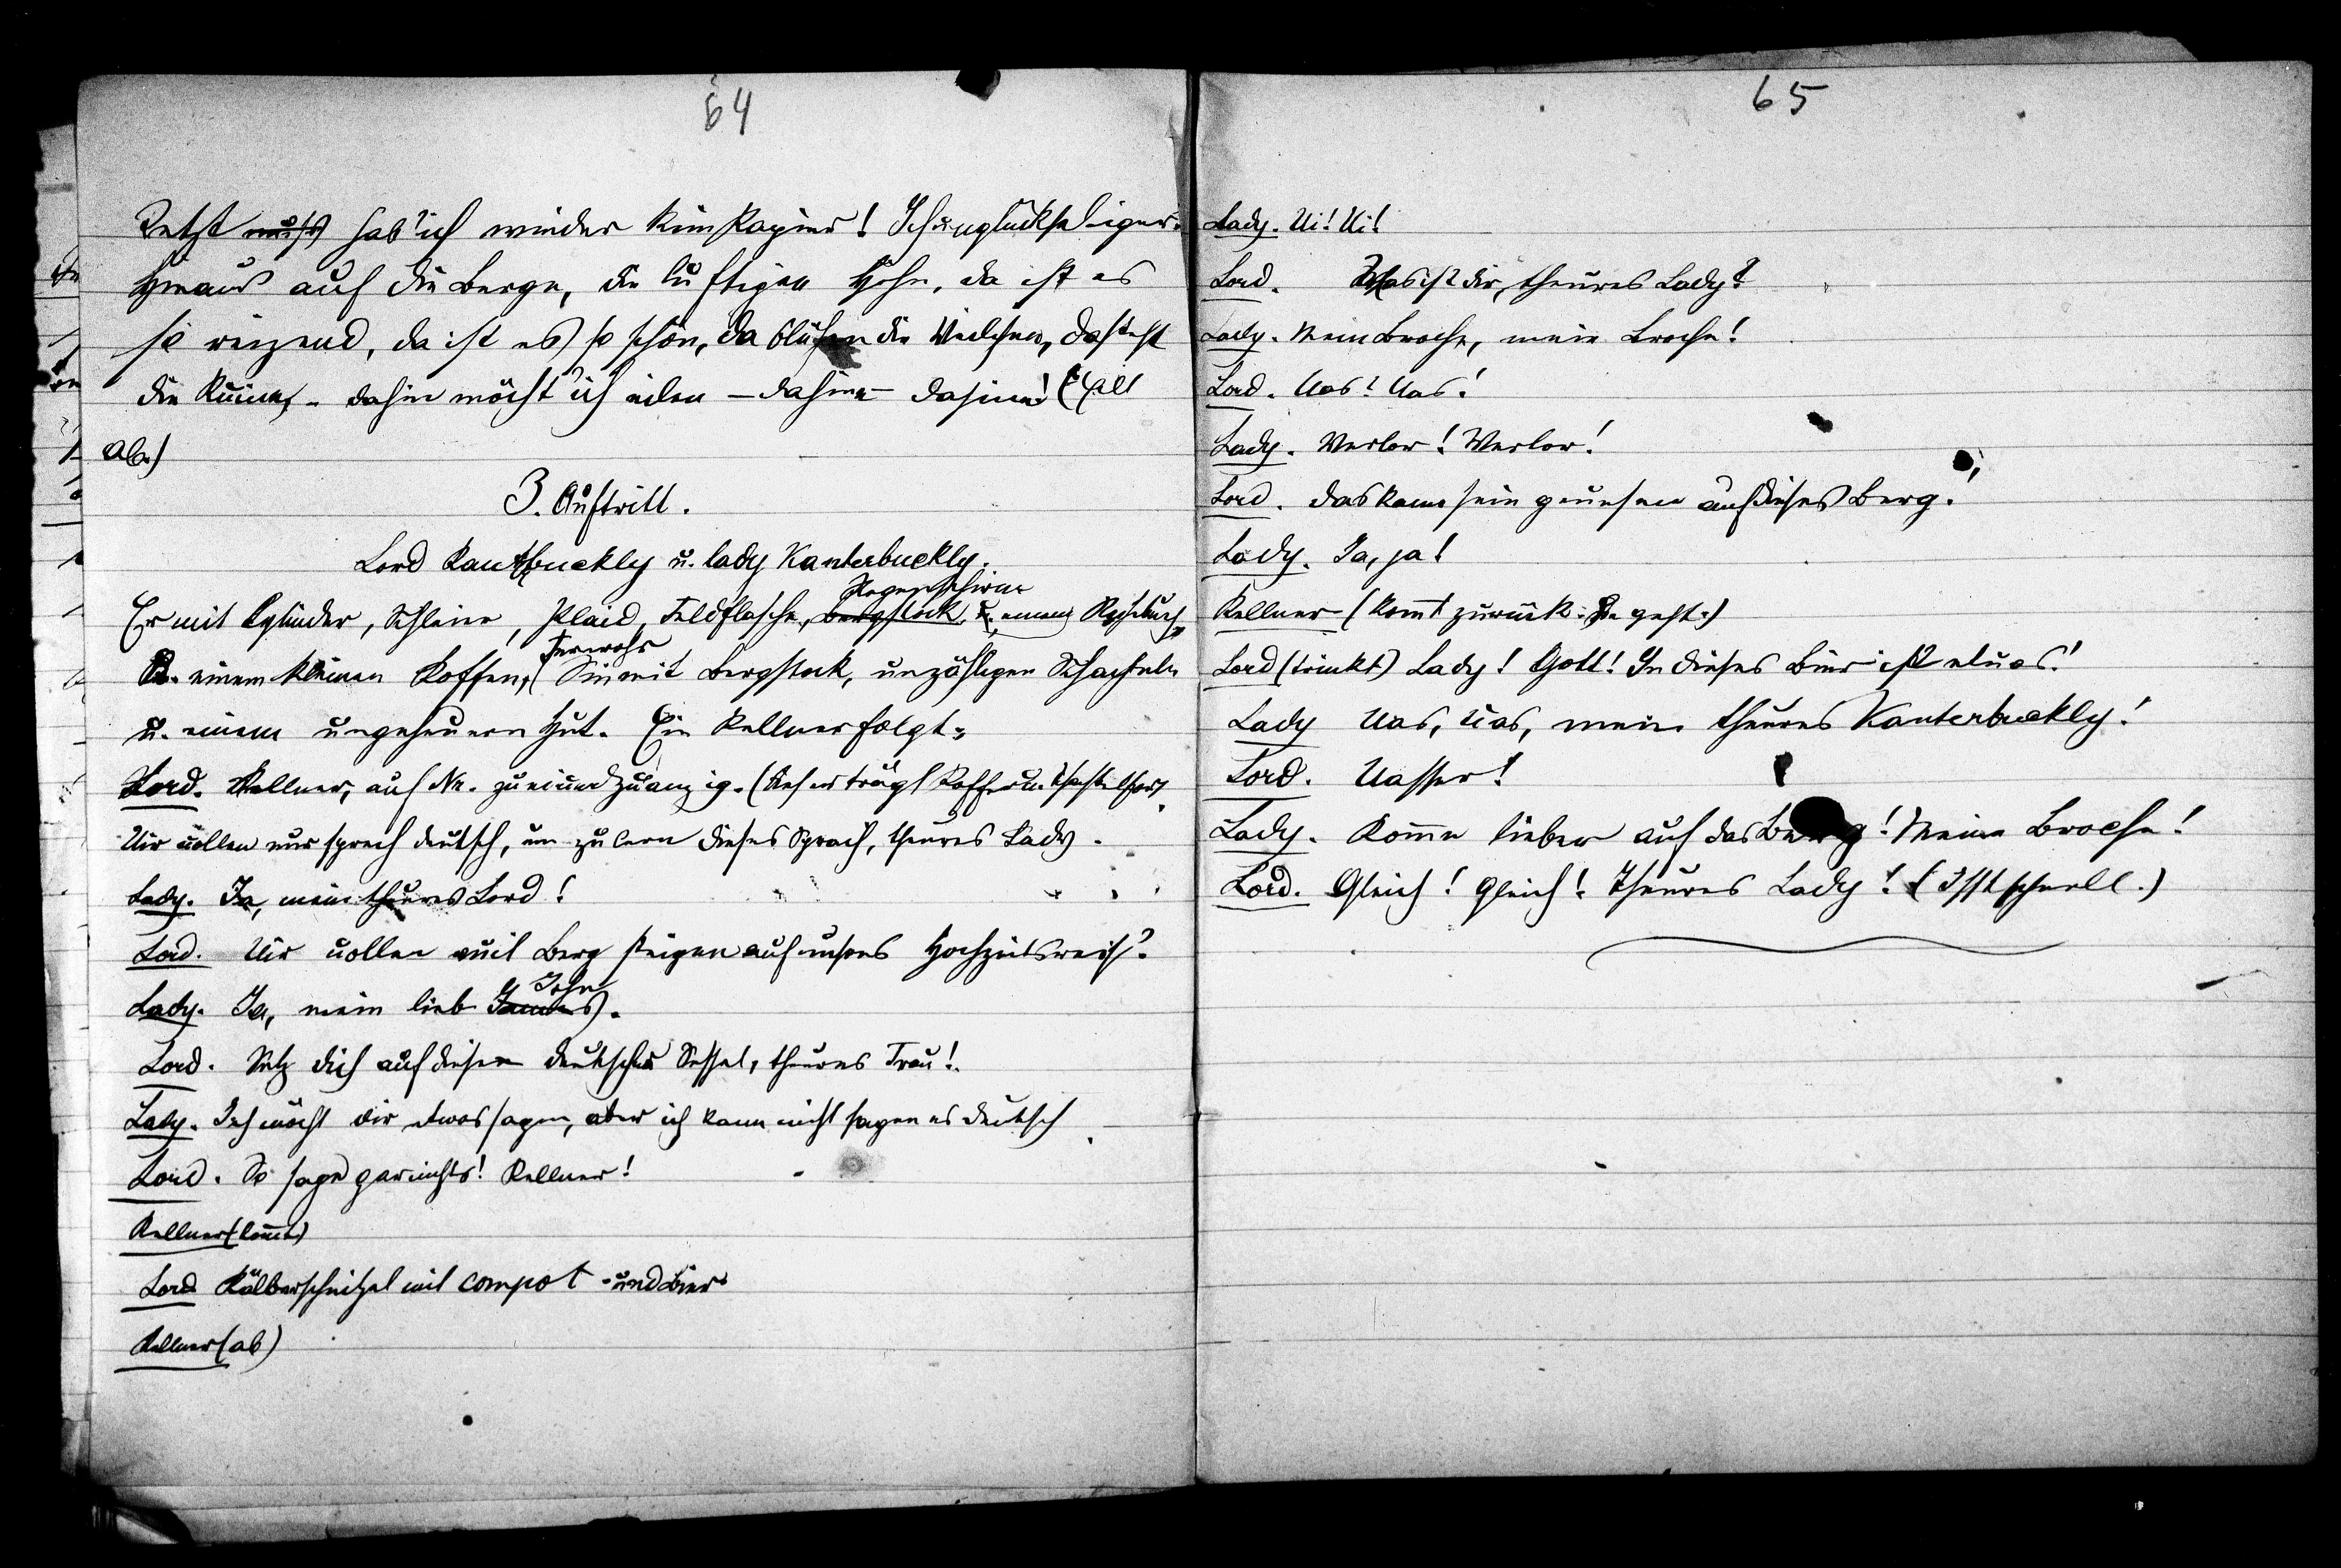 64
Jetzt muß hab' ich wieder kein Papier! Ich unglückseliger.
Hinaus auf die Berge, die luftigen Höhn, da ist es
so reizend, da ist es so schön, da blühen die Veilchen, da steht
die Ruine, - dahin möcht' ich eilen - dahin - dahin! (Eilt
ab.)
3. Auftritt.
Lord Kanterbuckly u. lady Kanterbuckly.
Regenschirm
Er mit Cylinder, Schleier, Plaid, Feldflasche, Bergstock, u. einem Reisebuch,
Fernrohr
u. einem kleinen Koffer, Sie mit Bergstock, unzähligen Schachteln
u. einem ungeheuern Hut. Ein Kellner folgt.
Lord. Kellner, auf Nr. zueiundzuanzig. (Dieser trägt Koffer u. Schachtel fort.
Uir uollen nur sprech deutsch, um zu lern dieses Sprach, theures Lady.
Lady. Ja, mein theures Lord!
Lord. Uir uollen auf Berg steigen auf unsres Hochzeitsreis?
John
Lady. Ja, mein lieb James.
Lord. Setz dich auf diesen deutschen Sessel, theures Frau!
Lady. Ich möcht dir etwas sagen, aber ich kann nicht sagen es deutsch
Lord. So sage gar nichts! Kellner!
Kellner (kommt)
Lord Kälberschnitzel mit compot und Bier
Kellner (ab)
65
Lady. Ui! Ui!
Lord. Was ist dir, theures Lady?
Lady. Mein Broche, mein Broche!
Lord. Uas! Uas!
Lady. Verlor! Verlor!
Lord. Das kann sein geuesen auf dieses Berg!
Lady. Ja, ja!
Kellner (kommt zurück. geht.)
Lord (trinkt) Lady! Gott! In dieses Bier ist etuas!
Lady Uas, uas, mein theures Kanterbuckly!
Lord. Uasser!
Lady. Komme lieber auf das Berg! Meine Broche!
Lord. Gleich! Gleich! Theures Lady! (Isst schnell.)